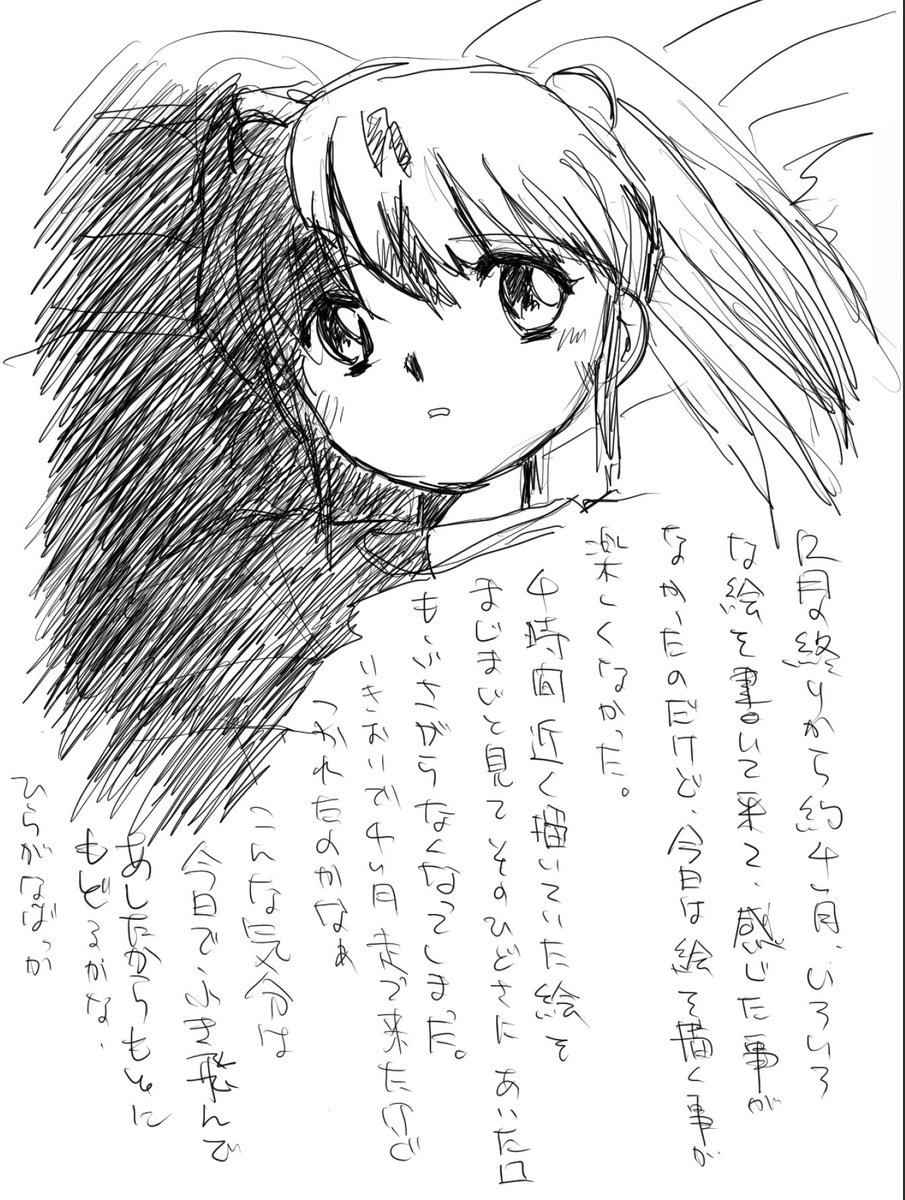 12月の終りから約4ヶ月、いろいろ
な絵を書いて来て、感じた事が
なかったのだけど、今日は絵を描く事が
楽しくなかった。
4時間近く描いていた絵を
まじまじと見てそのひどさにあいた口
もふさがらなくなってしまった。
いきおいで4ヶ月走って来たけど
つかれたのかなぁ
こんな気分は
今日でふき飛んで
あしたからもとに
もどるかな、
ひらがなばっか